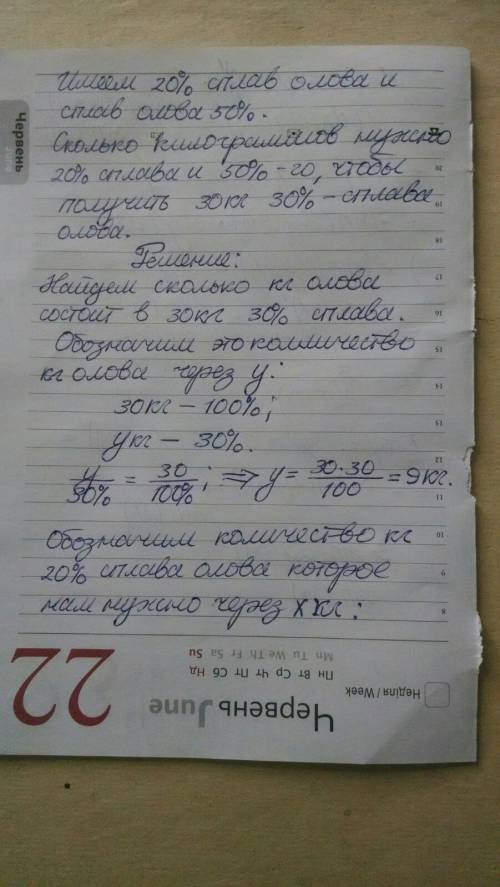 Имеем 20% сплав олова и
сплав олова 50%.
Сколько килограммов нужно
20% сплава и 50%-го, чтобы
получить 30кг 30%-сплава
олова.
Решение:
Найдем сколько кг олова
состоит в 30кг 30% сплава.
Обозначим это колличество
кг олова через y:
30кг – 100%;
yкг – 30%.
y/30% = 30/100%; ⇒ y = 30·30/100 = 9кг.
Обозначим количество кг
20% сплава олова которое
нам нужно через x кг:
Червень
June
20
19
18
17
16
15
14
13
12
11
10
9
8
22
Червень June
Пн Вт Ср Чт Пт Сб Нд
Mn Tu We Th Fr Sa Su
Неділя / Week